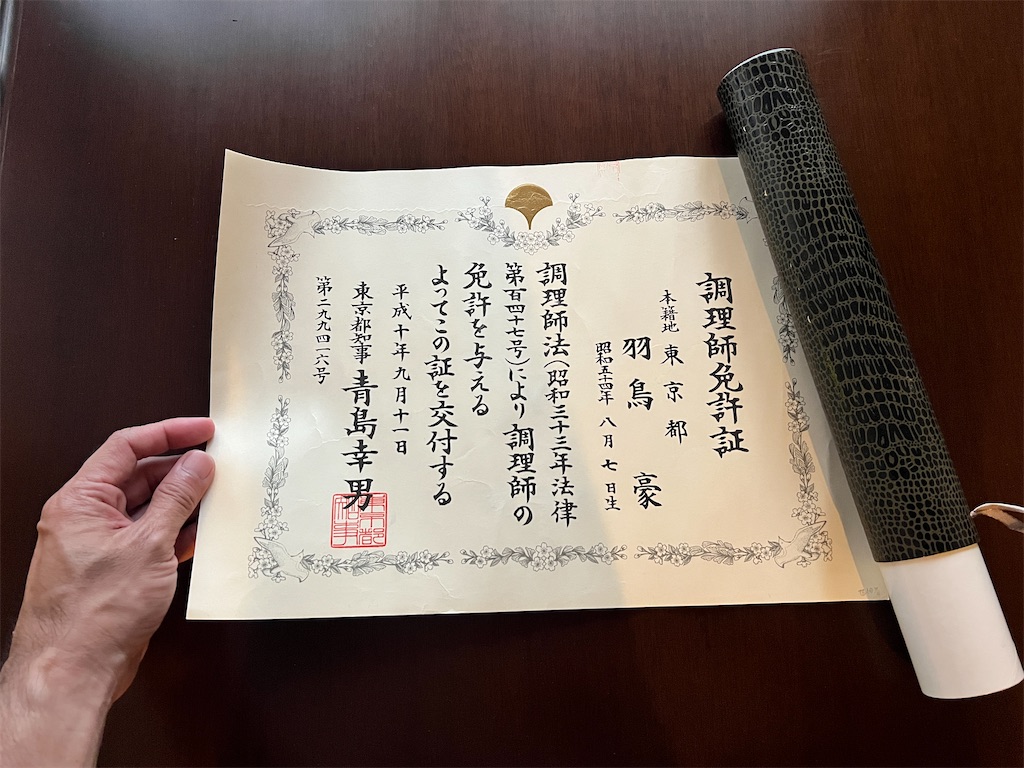 調理師免許証
本籍地 東京都
羽鳥 豪
昭和五十四年 八月 七日生
調理師法(昭和三十三年法律
第百四十七号)により 調理師の
免許を与える
よってこの証を交付する
平成十年九月十一日
東京都知事 青島幸男
第二九九四一六号